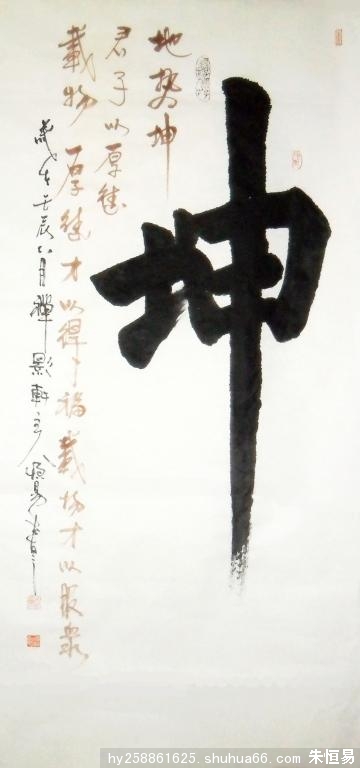 坤
地势坤
君子以厚德
載物 厚德才以得下福 載物才以服眾
歲在壬辰六月禪影軒主人恒易書
hy258861625.shuhua66.com
朱恒易